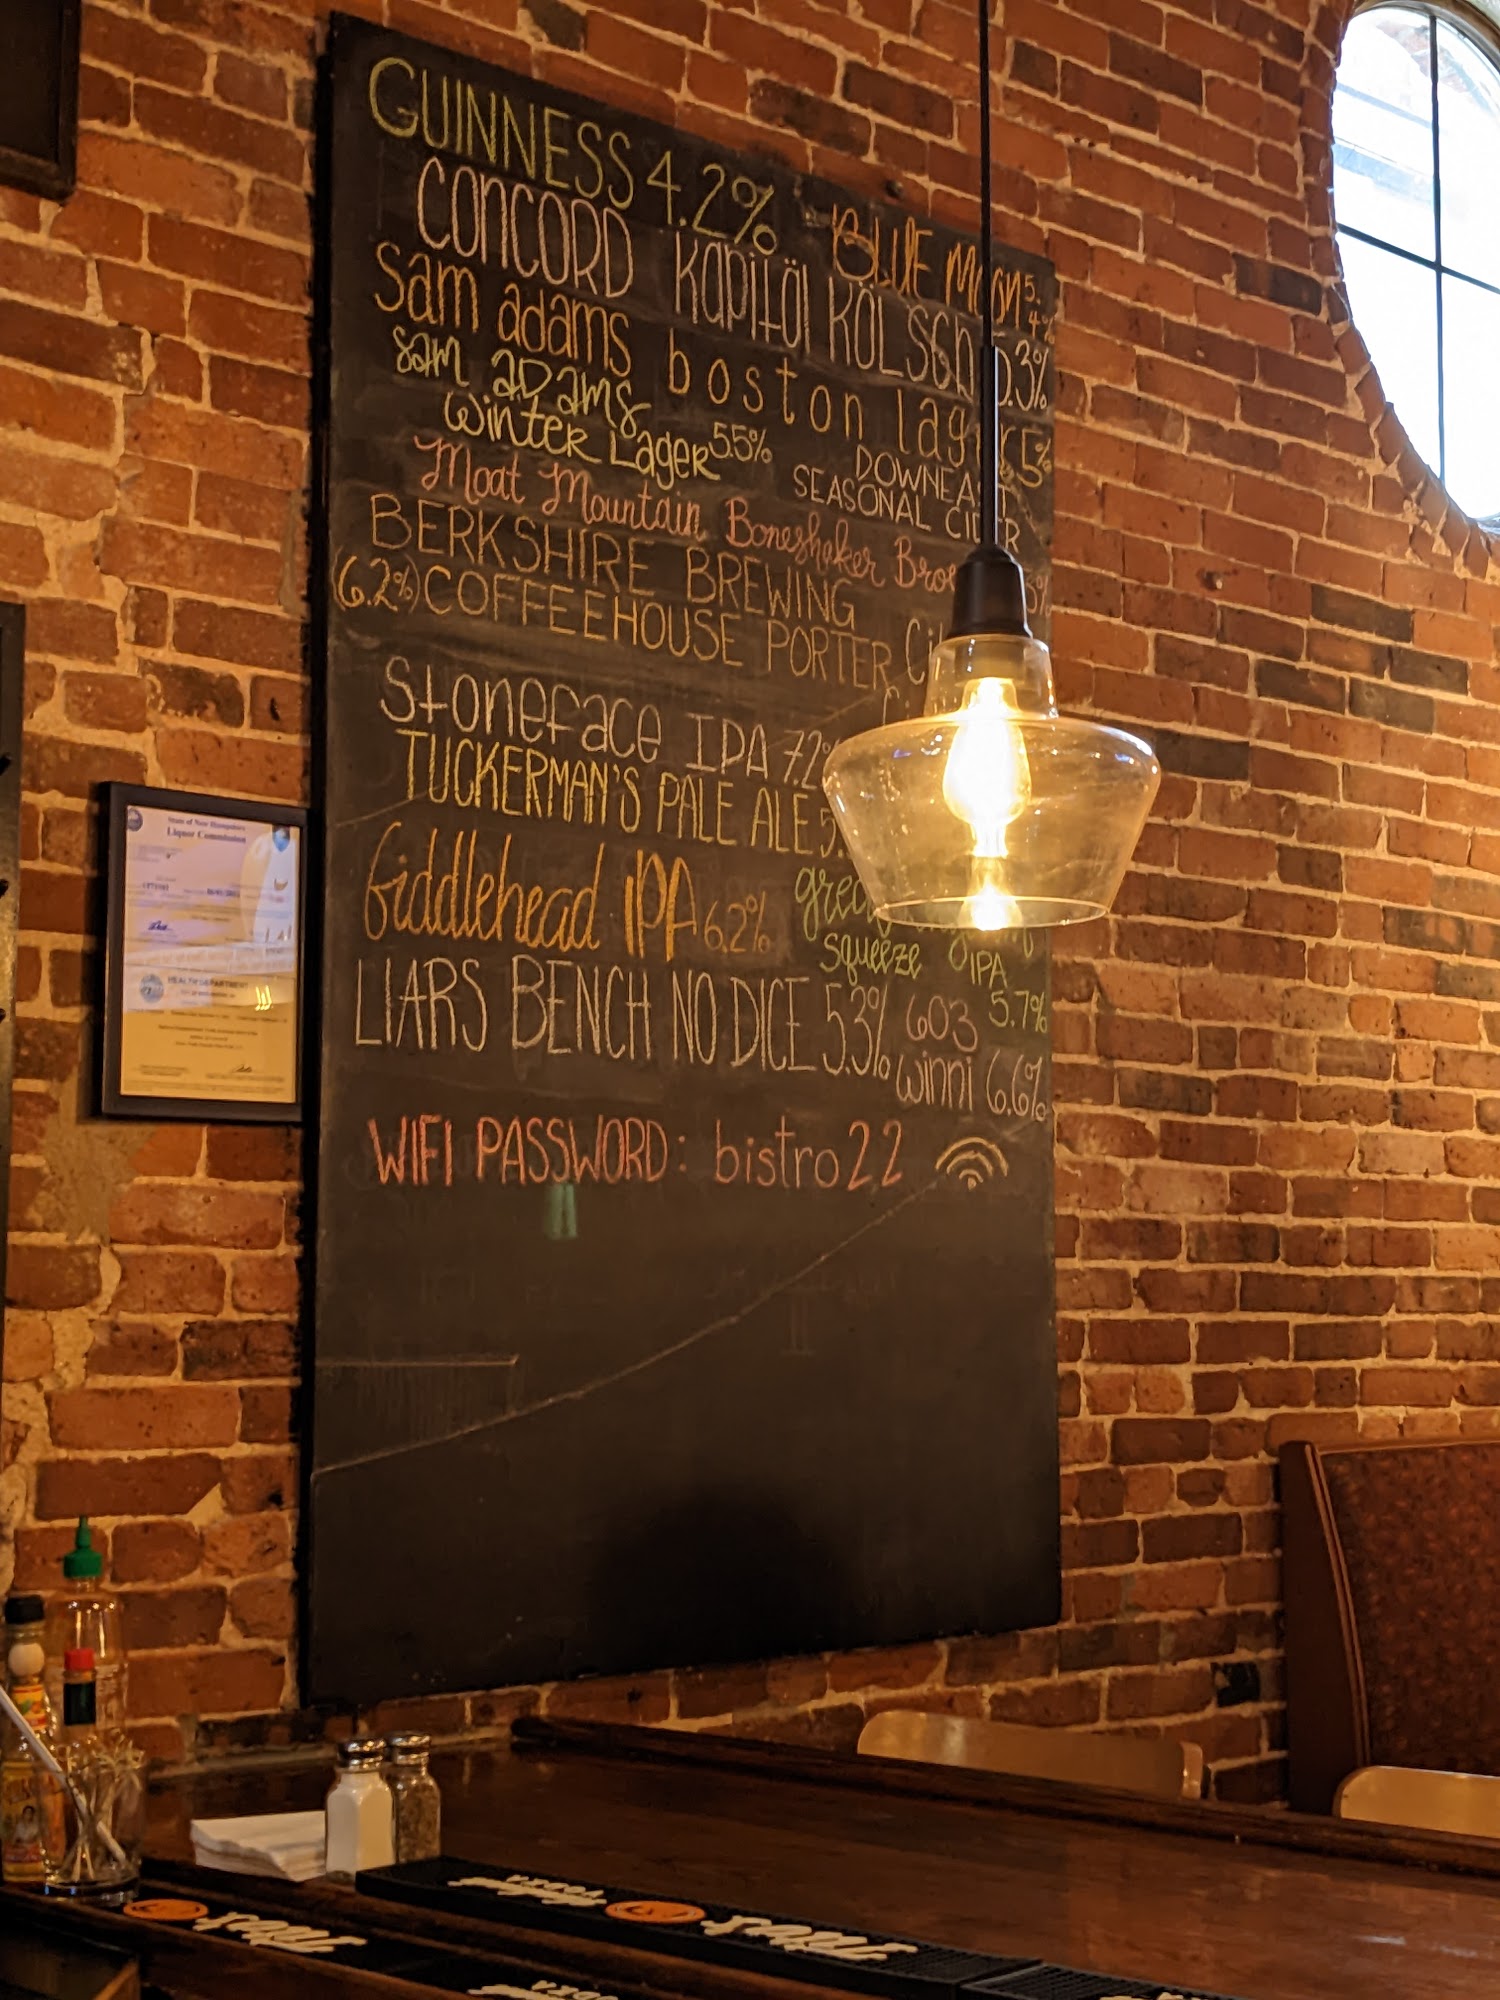 GUINNESS 4.2%
BLUE MOON 5.4%
CONCORD KAPITÖL KÖLSCH 5.3%
sam adams boston lager 5%
sam ADAMS
WINTER LAGER 5.5%
DOWNEAST
SEASONAL CIDER
Moat Mountain Boneshaker
BERKSHIRE BREWING
(6.2%) COFFEEHOUSE PORTER
Stoneface IPA 7.2%
TUCKERMAN'S PALE ALE
fiddlehead IPA 6.2%
squeeze IPA
5.7%
LIARS BENCH NO DICE 5.3%
603
winni 6.6%
WIFI PASSWORD: bistro22
State of New Hampshire
Liquor Commission
HEALTH DEPARTMENT
TITO'S
VODKA
TITO'S